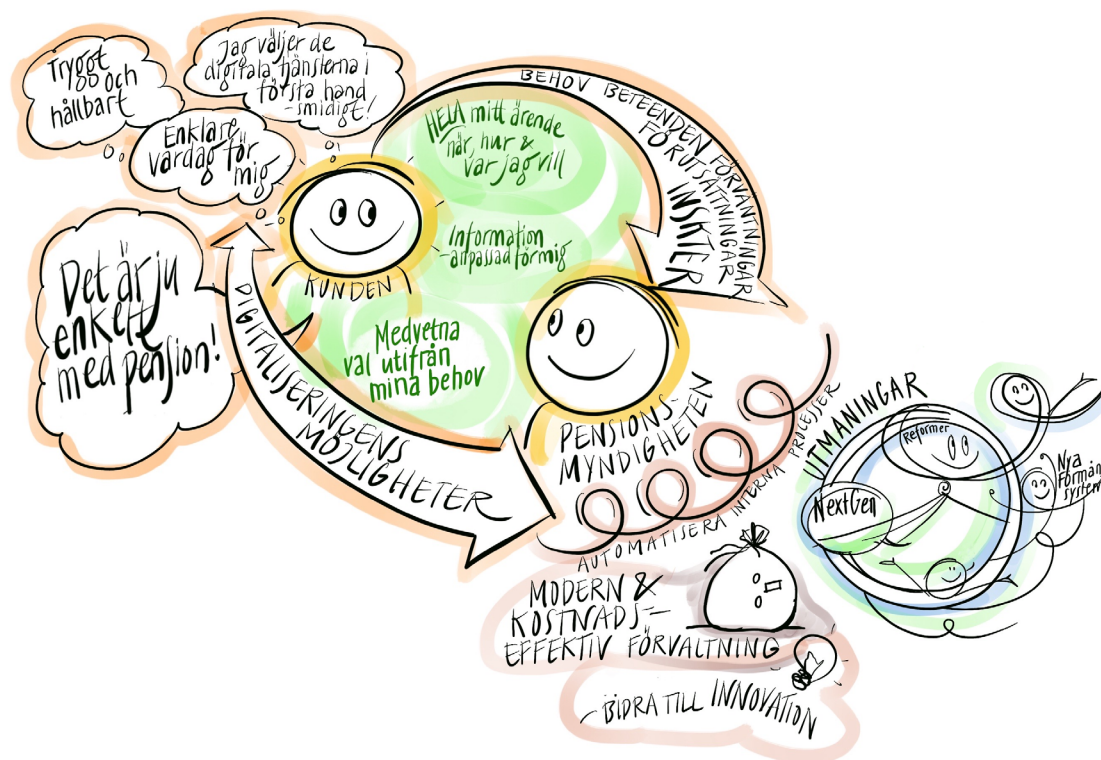 Tryggt
och
hållbart
Jag väljer de
digitala tjänsterna i
första hand
-smidigt!
Enklare
vardag för
mig
Det är ju
enkelt
med pension!
KUNDEN
HELA mitt ärende
när, hur &
var jag vill
Information
-anpassad för mig
Medvetna
val utifrån
mina behov
BEHOV BETEENDEN FÖRVÄNTNINGAR
FÖRUTSÄTTNINGAR
INSIKTER
DIGITALISERINGENS
MÖJLIGHETER
PENSIONS-
MYNDIGHETEN
AUTOMATISERA INTERNA PROCESSER
MODERN &
KOSTNADS-
EFFEKTIV FÖRVALTNING
-BIDRA TILL INNOVATION
UTMANINGAR
Reformer
NextGen
Nya
Förmån
system